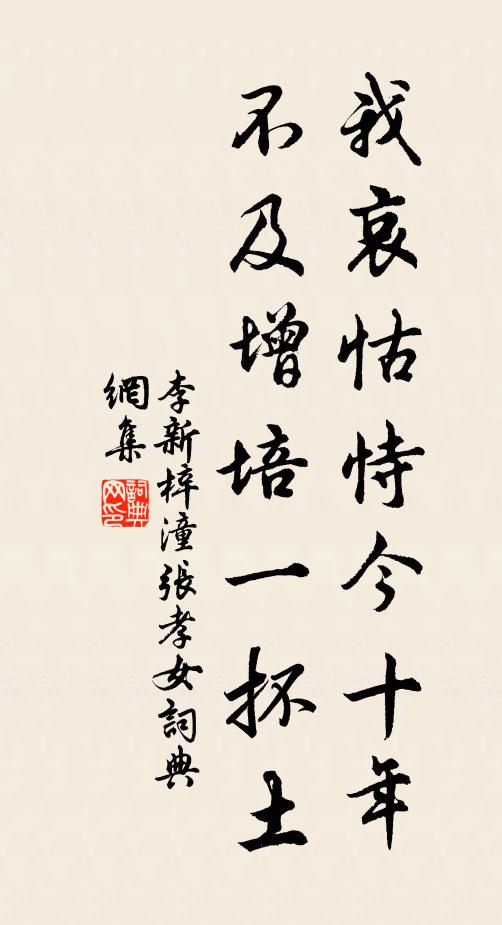 我哀怙恃今十年
不及增培一抔土
李新梓潼張孝女詞典
網集
詞典
网印